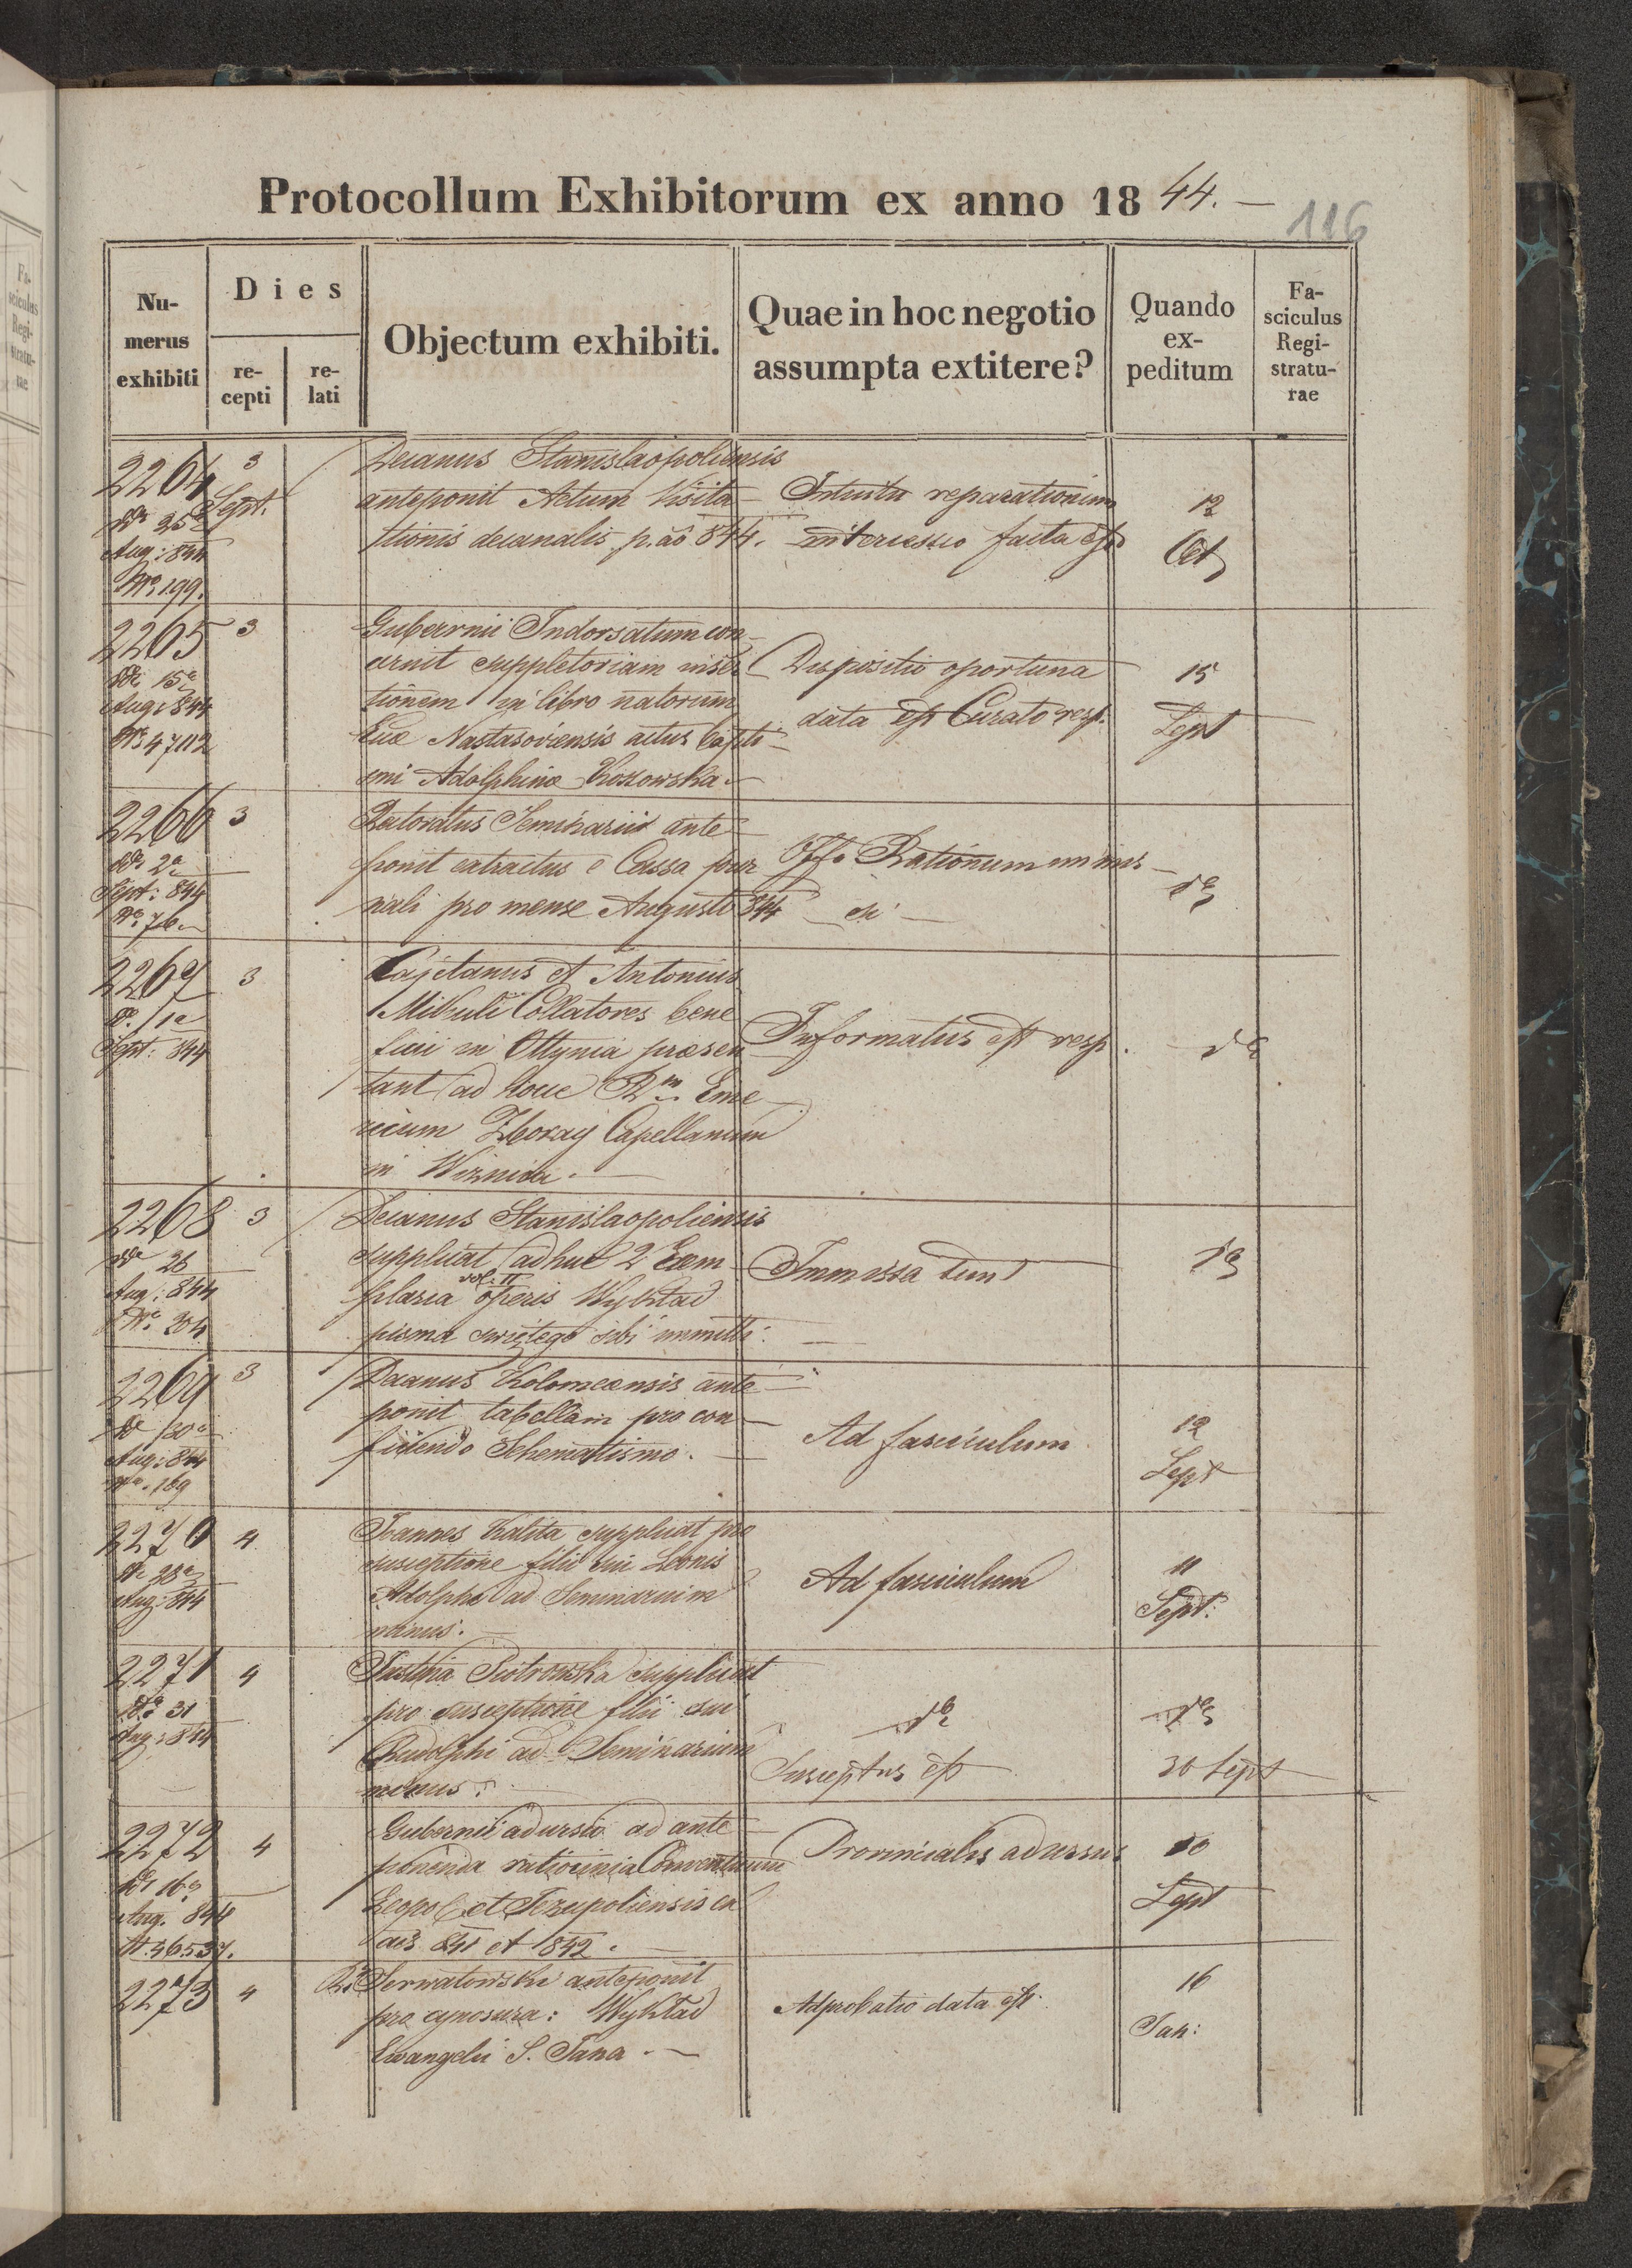 Protocollum Exhibitorum ex anno 1844. —
116
Nu-
merus
exhibiti
Dies
re-
cepti
re-
lati
Objectum exhibiti.
Quae in hoc negotio
assumpta extitere?
Quando
ex-
peditum
Fa-
sciculus
Regi-
stratu-
rae
2264
3
Sept.
Aug: 844
No 199.
Decanus Stanislaopoliensis
anteponit Actum Visita-
tionis decanalis p. ao 844.
Intuitu reparationum
intercessio facta est
12
Oct
2265
3
dde 15a
Aug: 844
No 47112
Gubernii Indorsatum con-
cernit suppletoriam inser-
tionem in libro natorum
Ecclae Nastasoviensis actus bapti-
smi Adolphinae Kozowska
Dispositio oportuna
data est Curato resp.
15
Sept
2266
3
dde 2a
Sept: 844
No 76
Rectoratus Seminarii ante-
ponit extractus e Cassa
pro mense Augusto 844
Offo Rationum
2267
3
Sept: 844
Cajetanus et Antonius
Mikuli Collatores bene-
ficii in Ottynia praesen-
tant ad hocce Rm Eme-
ricum Zboray Capellanum
in Wiznica.
Informatus est resp.
2268
3
Aug: 844
No 204
Decanus Stanislaopoliensis
supplicat adhuc 2 Exem-
plaria vol: II operis Wykład
pisma świętego sibi immitti.
Immissa sunt
2269
3
Aug: 844
No. 189
Decanus Kolomeensis ante-
ponit tabellam pro con-
ficiendo Schematismo.
Ad fasciculum
12
Sept
2270
4
Aug: 844
Joannes Kalita supplicat pro
susceptione filii sui Leonis
Adolphi ad Seminarium
minus.
Ad fasciculum
11
Sept:
2271
4
dde 31
Aug: 844
Justina Piotrowska supplicat
pro susceptione filii sui
Rudolphi ad Seminarium
minus.
Susceptus est
30 Sept
2272
4
dde 16a
Aug. 844
N. 46537.
Gubernii adursio ad ante-
ponenda ratiocinia Conventuum
Leopol. et Jezupoliensis ex
ais 841 et 1842.
Provincialis adursus
10
Sept
2273
4
Serwatowski anteponit
pro cynosura: Wykład
Ewangelii S. Jana. —
Adprobatio data est.
16
Jan: